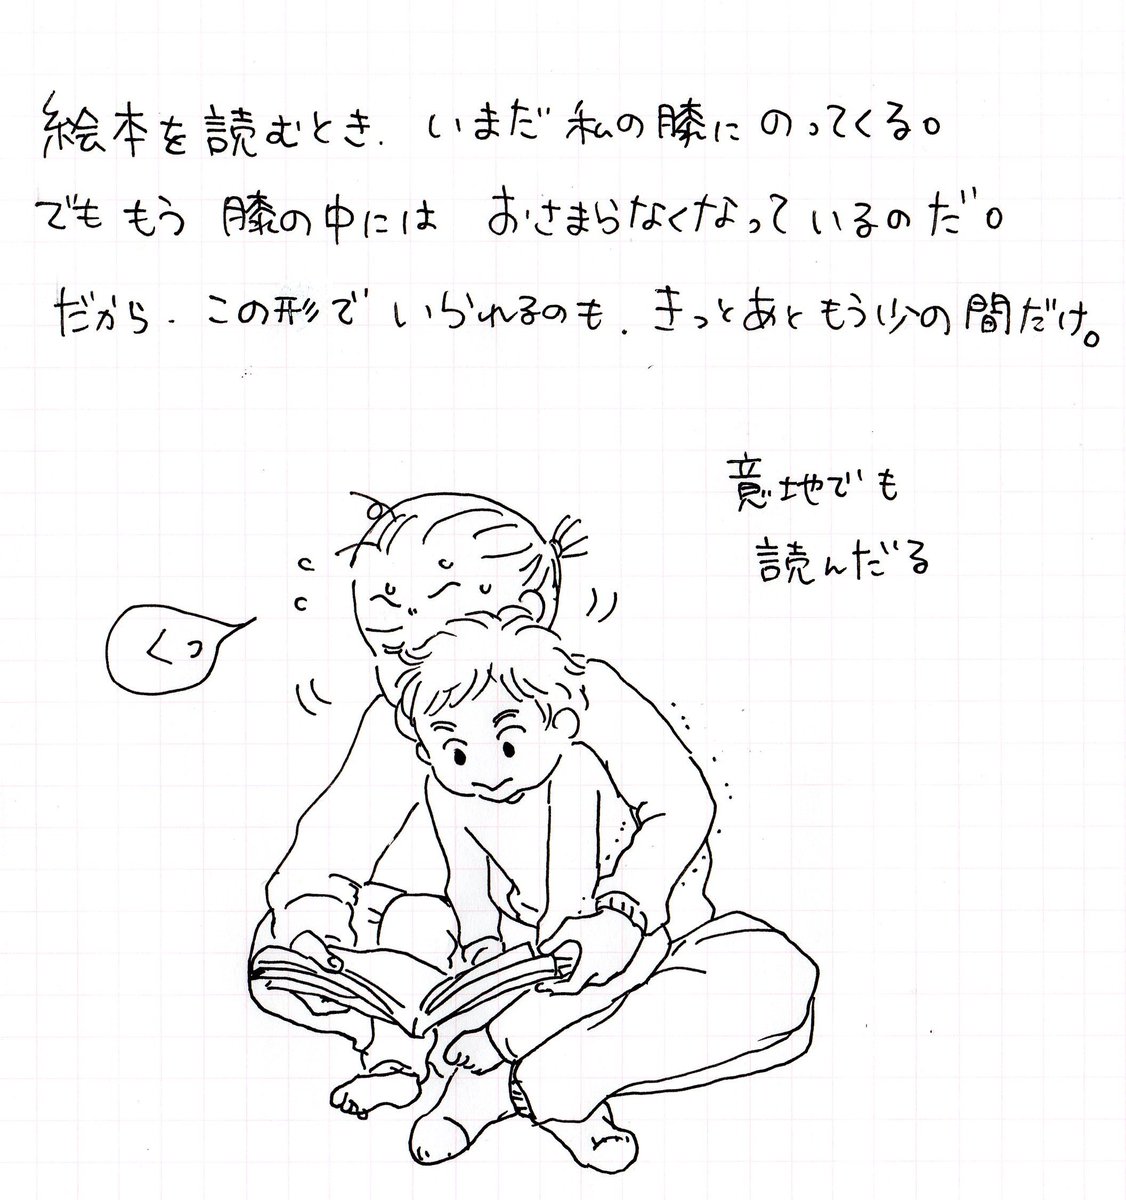 絵本を読むとき、いまだ私の膝にのってくる。
でももう膝の中にはおさまらなくなっているのだ。
だから、この形でいられるのも、きっとあともう少の間だけ。
意地でも
読んだる
くっ